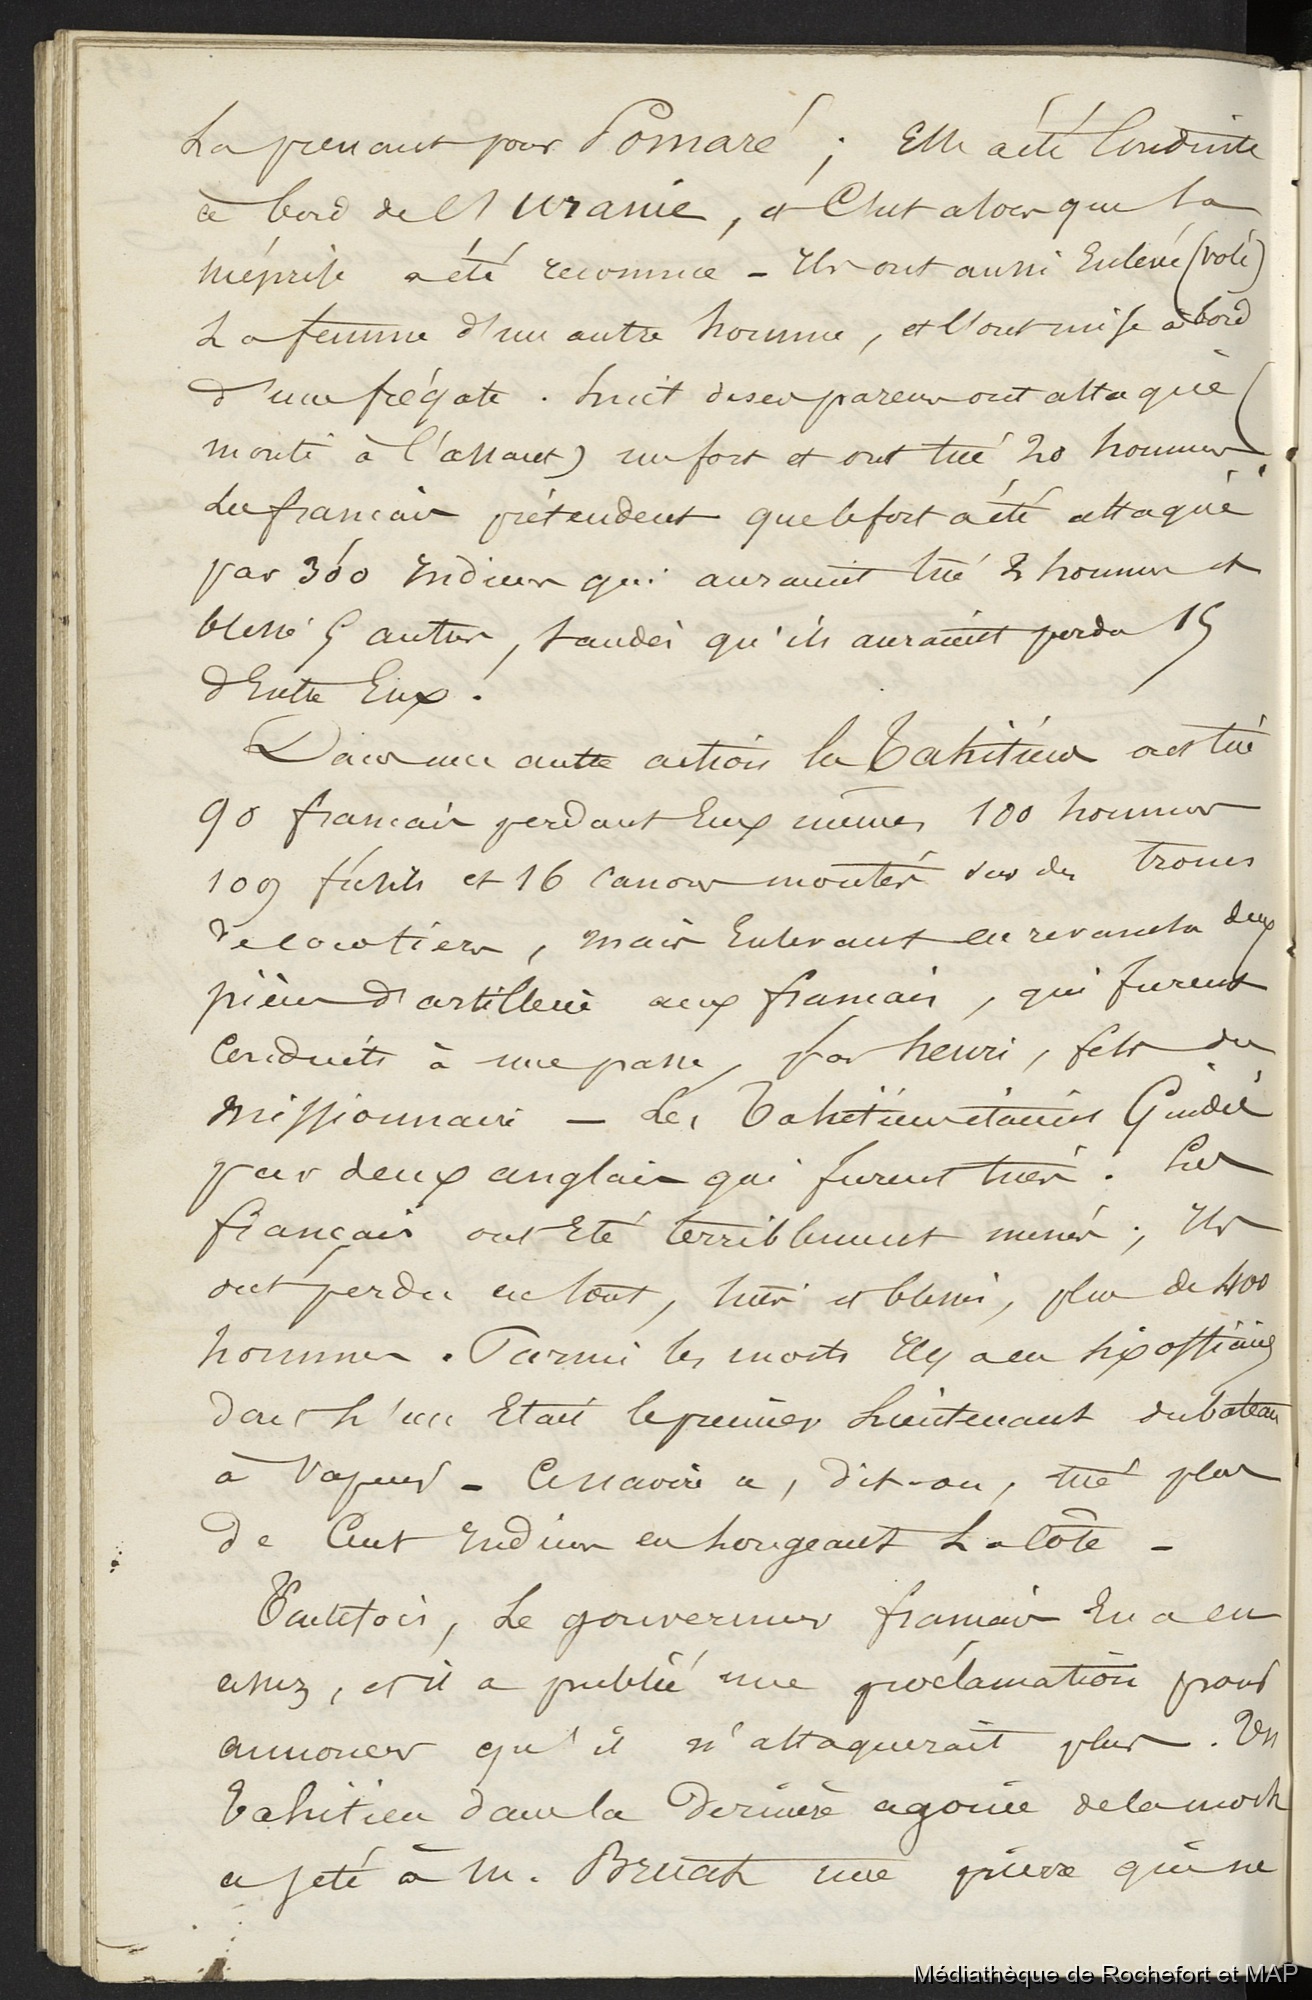 La prenant pour Pomaré ; Elle a été Conduite
à bord de l'Uranie, et C'est alors que la
méprise a été reconnue – Ils ont aussi Enlevé (volé)
La femme d'un autre homme, et l'ont mise à bord
d'une frégate. huit de ses parens ont attaqué (
monté à l'assaut) un fort et ont tué 20 hommes.
Les français prétendent que le fort a été attaqué
par 300 Indiens qui auraient tué 2 hommes et
blessé 5 autres, tandis qu'ils auraient perdu 15
d'Entre Eux.
Dans une autre action les Tahitiens ont tué
90 français perdant Eux mêmes 100 hommes
109 fusils et 16 canons montés sur des troncs
de cocotiers, mais Enlevant en revanche deux
pièces d'artillerie aux français, qui furent
Conduits à une passe, par henri, fils du
missionnaire – Les Tahitiens étaient Guidés
par deux anglais qui furent tués. Les
français ont Eté terriblement menés ; Ils
ont perdu en tout, tués et blessés, plus de 400
hommes. Parmi les morts Il y a eu six officiers
dont l'un Etait le premier lieutenant du bateau
à Vapeur – Ce navire a, dit-on, tué plus
de Cent Indiens en longeant La côte –
Toutefois, Le gouverneur français En a eu
assez, et il a publié une proclamation pour
annoncer qu'il n'attaquerait plus. Un
Tahitien dans la dernière agonie de la mort
a jeté à M. Bruat une pierre qui ne
Médiathèque de Rochefort et MAP